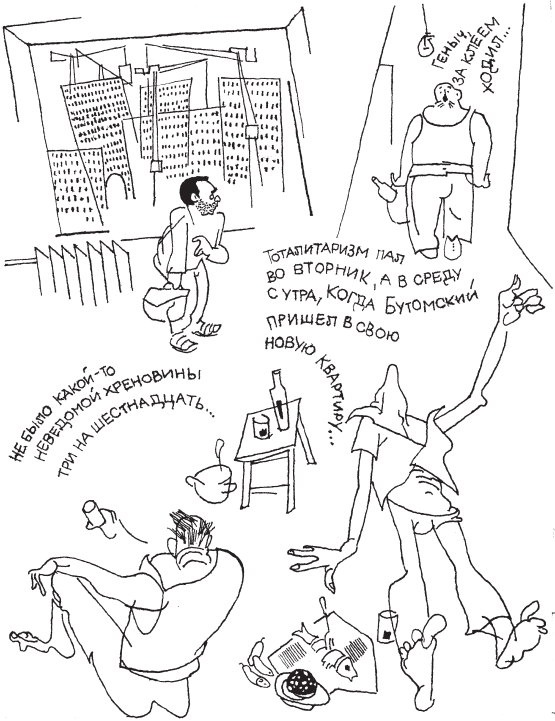 Геныч,
за клеем
ходил...
Тоталитаризм пал
во вторник, а в среду
с утра, когда Бутомский
пришел в свою
новую квартиру...
Не было какой-то
неведомой хреновины
три на шестнадцать...